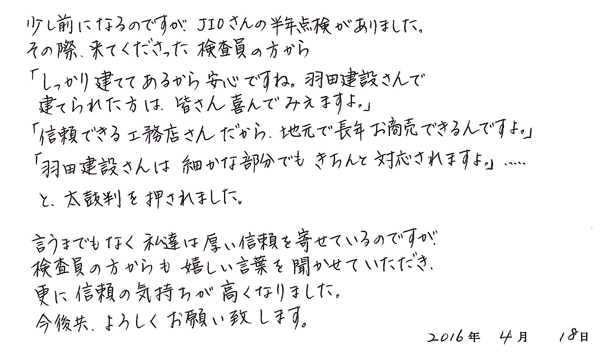 少し前になるのですが JIOさんの半年点検がありました。
その際、来てくださった 検査員の方から
「しっかり建ててあるから 安心ですね。羽田建設さんで
建てられた方は、皆さん 喜んでみえますよ。」
「信頼できる工務店さんだから、地元で長年お商売できるんですよ。」
「羽田建設さんは 細かな部分でも きちんと 対応されますよ。」.....
と、太鼓判を押されました。
言うまでもなく 私達は厚い信頼を寄せているのですが
検査員の方からも 嬉しい言葉を聞かせていただき、
更に信頼の気持ちが高くなりました。
今後共、よろしくお願い致します。
2016年 4月 18日